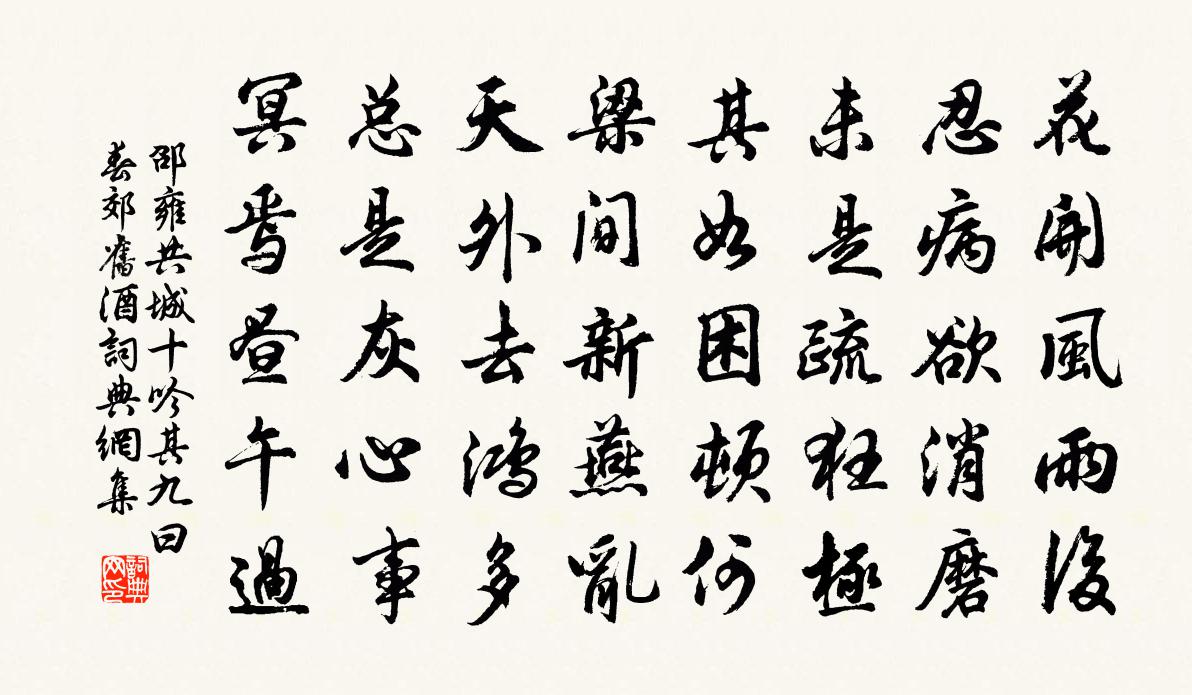 花開風雨後
忍病欲消磨
未是疏狂極
其如困頓何
梁间新燕亂
天外去鸿多
总是灰心事
冥焉昼午過
邵雍共城十吟其九曰
春郊舊酒詞典網集
詞典
网印